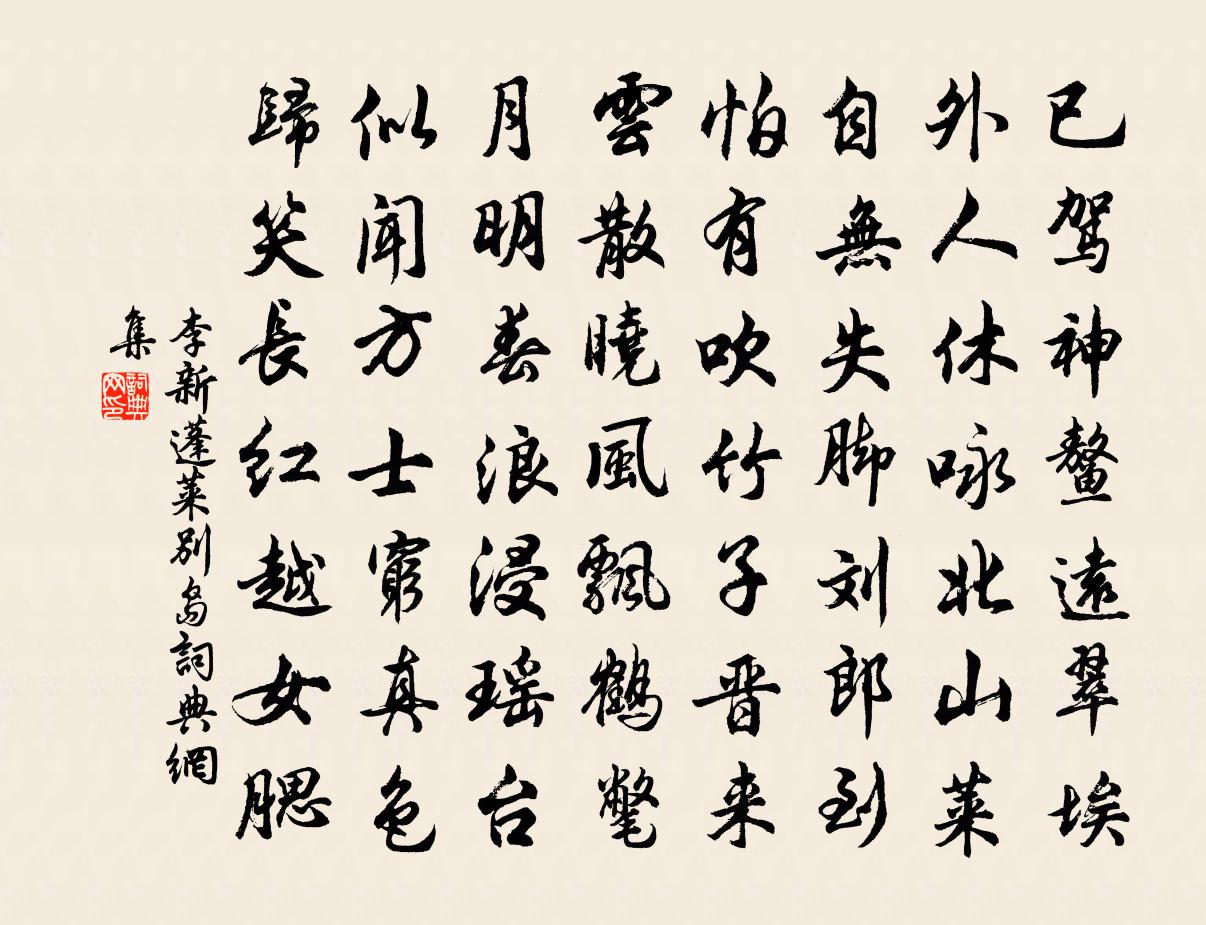 已驾神鳌遠翠埃
外人休咏北山莱
自無失脚刘郎到
怕有吹竹子晋来
雲散曉風飄鶴氅
月明春浪浸瑶台
似闻方士窮真色
歸笑長红越女腮
李新蓬莱别岛詞典網
集
詞典
网印